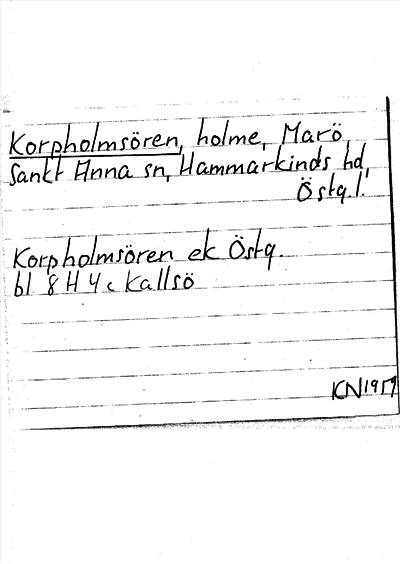 Korpholmsören, holme, Marö
Sankt Anna sn, Hammarkinds hd,
Östg.l.
Korpholmsören ek Östg.
bl 8 H 4 c Kallsö